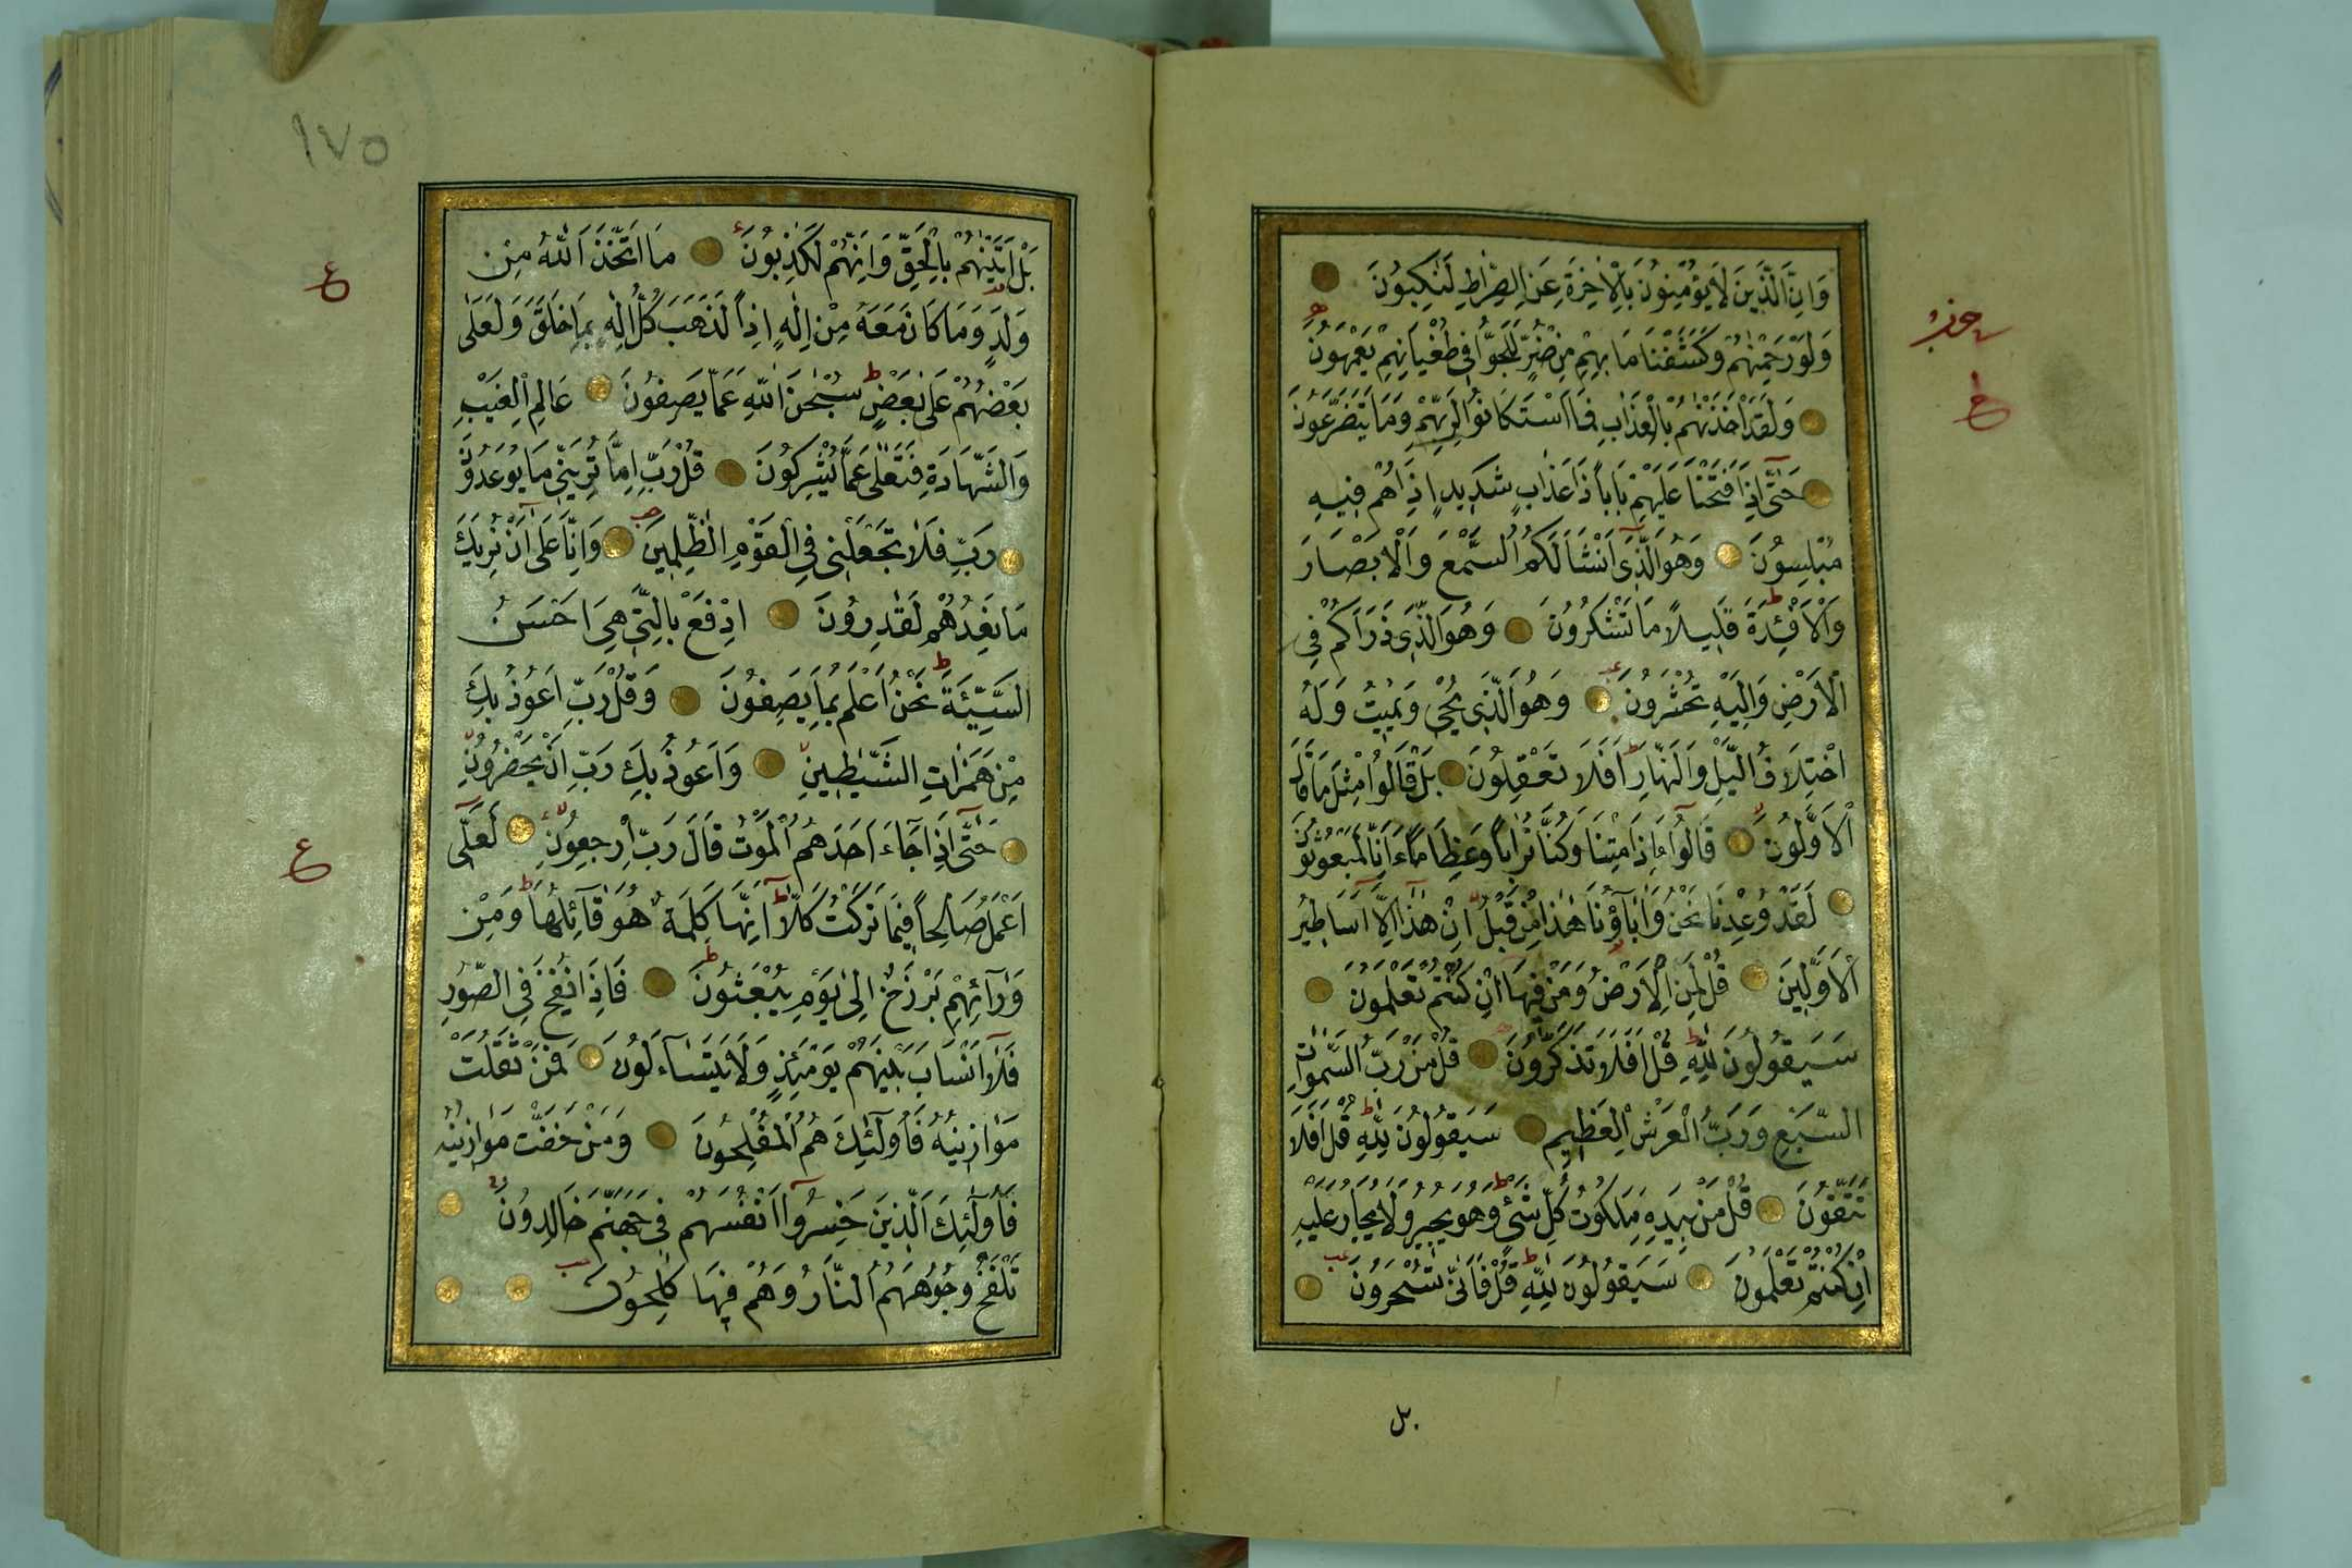 وَاِنَّ الَّذِينَ لَا يُؤْمِنُونَ بِالْاٰخِرَةِ عَنِ الصِّرَاطِ لَنَٰكِبُونَ
وَلَوْ رَحِمْنٰهُمْ وَكَشَفْنَا مَا بِهِمْ مِنْ ضُرٍّ لَلَجُّوا فِى طُغْيَانِهِمْ يَعْمَهُونَ
حزب
وَلَقَدْ اَخَذْنٰهُمْ بِالْعَذَابِ فَمَا اسْتَكَانُوا لِرَبِّهِمْ وَمَا يَتَضَرَّعُونَ
حَتّٰى اِذَا فَتَحْنَا عَلَيْهِمْ بَاباً ذَا عَذَابٍ شَدِيدٍ اِذَا هُمْ فِيهِ
مُبْلِسُونَ وَهُوَ الَّذِى اَنْشَاَ لَكُمُ السَّمْعَ وَالْاَبْصَارَ
وَالْاَفْئِدَةَ قَلِيلاً مَا تَشْكُرُونَ وَهُوَ الَّذِى ذَرَاَكُمْ فِى
الْاَرْضِ وَاِلَيْهِ تُحْشَرُونَ وَهُوَ الَّذِى يُحْيِى وَيُمِيتُ وَلَهُ
اخْتِلَافُ الَّيْلِ وَالنَّهَارِ اَفَلَا تَعْقِلُونَ بَلْ قَالُوا مِثْلَ مَا قَالَ
الْاَوَّلُونَ قَالُوا ءَاِذَا مِتْنَا وَكُنَّا تُرَاباً وَعِظَاماً ءَاِنَّا لَمَبْعُوثُونَ
لَقَدْ وُعِدْنَا نَحْنُ وَاٰبَاؤُنَا هٰذَا مِنْ قَبْلُ اِنْ هٰذَا اِلَّا اَسَاطِيرُ
الْاَوَّلِينَ قُلْ لِمَنِ الْاَرْضُ وَمَنْ فِيهَا اِنْ كُنْتُمْ تَعْلَمُونَ
سَيَقُولُونَ لِلّٰهِ قُلْ اَفَلَا تَذَكَّرُونَ قُلْ مَنْ رَبُّ السَّمٰوَاتِ
السَّبْعِ وَرَبُّ الْعَرْشِ الْعَظِيمِ سَيَقُولُونَ لِلّٰهِ قُلْ اَفَلَا
تَتَّقُونَ قُلْ مَنْ بِيَدِهِ مَلَكُوتُ كُلِّ شَىْءٍ وَهُوَ يُجِيرُ وَلَا يُجَارُ عَلَيْهِ
اِنْ كُنْتُمْ تَعْلَمُونَ سَيَقُولُونَ لِلّٰهِ قُلْ فَاَنّٰى تُسْحَرُونَ
بل
١٧٥
بَلْ اَتَيْنٰهُمْ بِالْحَقِّ وَاِنَّهُمْ لَكٰذِبُونَ مَا اتَّخَذَ اللّٰهُ مِنْ
ع
وَلَدٍ وَمَا كَانَ مَعَهُ مِنْ اِلٰهٍ اِذاً لَذَهَبَ كُلُّ اِلٰهٍ بِمَا خَلَقَ وَلَعَلٰى
بَعْضُهُمْ عَلٰى بَعْضٍ سُبْحٰنَ اللّٰهِ عَمَّا يَصِفُونَ عَالِمِ الْغَيْبِ
وَالشَّهَادَةِ فَتَعٰلٰى عَمَّا يُشْرِكُونَ قُلْ رَبِّ اِمَّا تُرِيَنِّى مَا يُوعَدُونَ
رَبِّ فَلَا تَجْعَلْنِى فِى الْقَوْمِ الظّٰلِمِينَ وَاِنَّا عَلٰى اَنْ نُرِيَكَ
مَا نَعِدُهُمْ لَقٰدِرُونَ اِدْفَعْ بِالَّتِى هِىَ اَحْسَنُ
السَّيِّئَةَ نَحْنُ اَعْلَمُ بِمَا يَصِفُونَ وَقُلْ رَبِّ اَعُوذُ بِكَ
مِنْ هَمَزَاتِ الشَّيٰطِينِ وَاَعُوذُ بِكَ رَبِّ اَنْ يَحْضُرُونِ
حَتّٰى اِذَا جَاءَ اَحَدَهُمُ الْمَوْتُ قَالَ رَبِّ ارْجِعُونِ لَعَلِّى
ع
اَعْمَلُ صَالِحاً فِيمَا تَرَكْتُ كَلَّا اِنَّهَا كَلِمَةٌ هُوَ قَائِلُهَا وَمِنْ
وَرَائِهِمْ بَرْزَخٌ اِلٰى يَوْمِ يُبْعَثُونَ فَاِذَا نُفِخَ فِى الصُّورِ
فَلَا اَنْسَابَ بَيْنَهُمْ يَوْمَئِذٍ وَلَا يَتَسَاءَلُونَ فَمَنْ ثَقُلَتْ
مَوَازِينُهُ فَاُولٰئِكَ هُمُ الْمُفْلِحُونَ وَمَنْ خَفَّتْ مَوَازِينُهُ
فَاُولٰئِكَ الَّذِينَ خَسِرُوا اَنْفُسَهُمْ فِى جَهَنَّمَ خَالِدُونَ
تَلْفَحُ وُجُوهَهُمُ النَّارُ وَهُمْ فِيهَا كَالِحُونَ